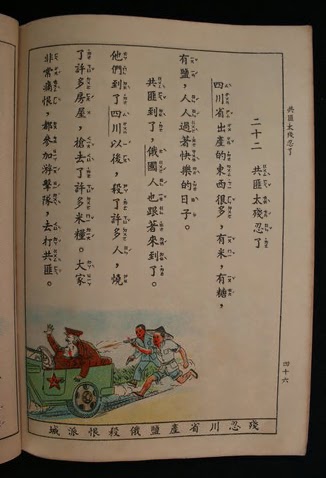 共匪太殘忍了
四十六
二十二　共匪太殘忍了
四川省出產的東西很多，有米，有糖，
有鹽，人人過著快樂的日子。
共匪到了，俄國人也跟著來到了。
他們到了四川以後，殺了許多人，燒
了許多房屋，搶去了許多米糧。大家
非常痛恨，都參加游擊隊，去打共匪。
殘忍川省產鹽俄殺恨派城